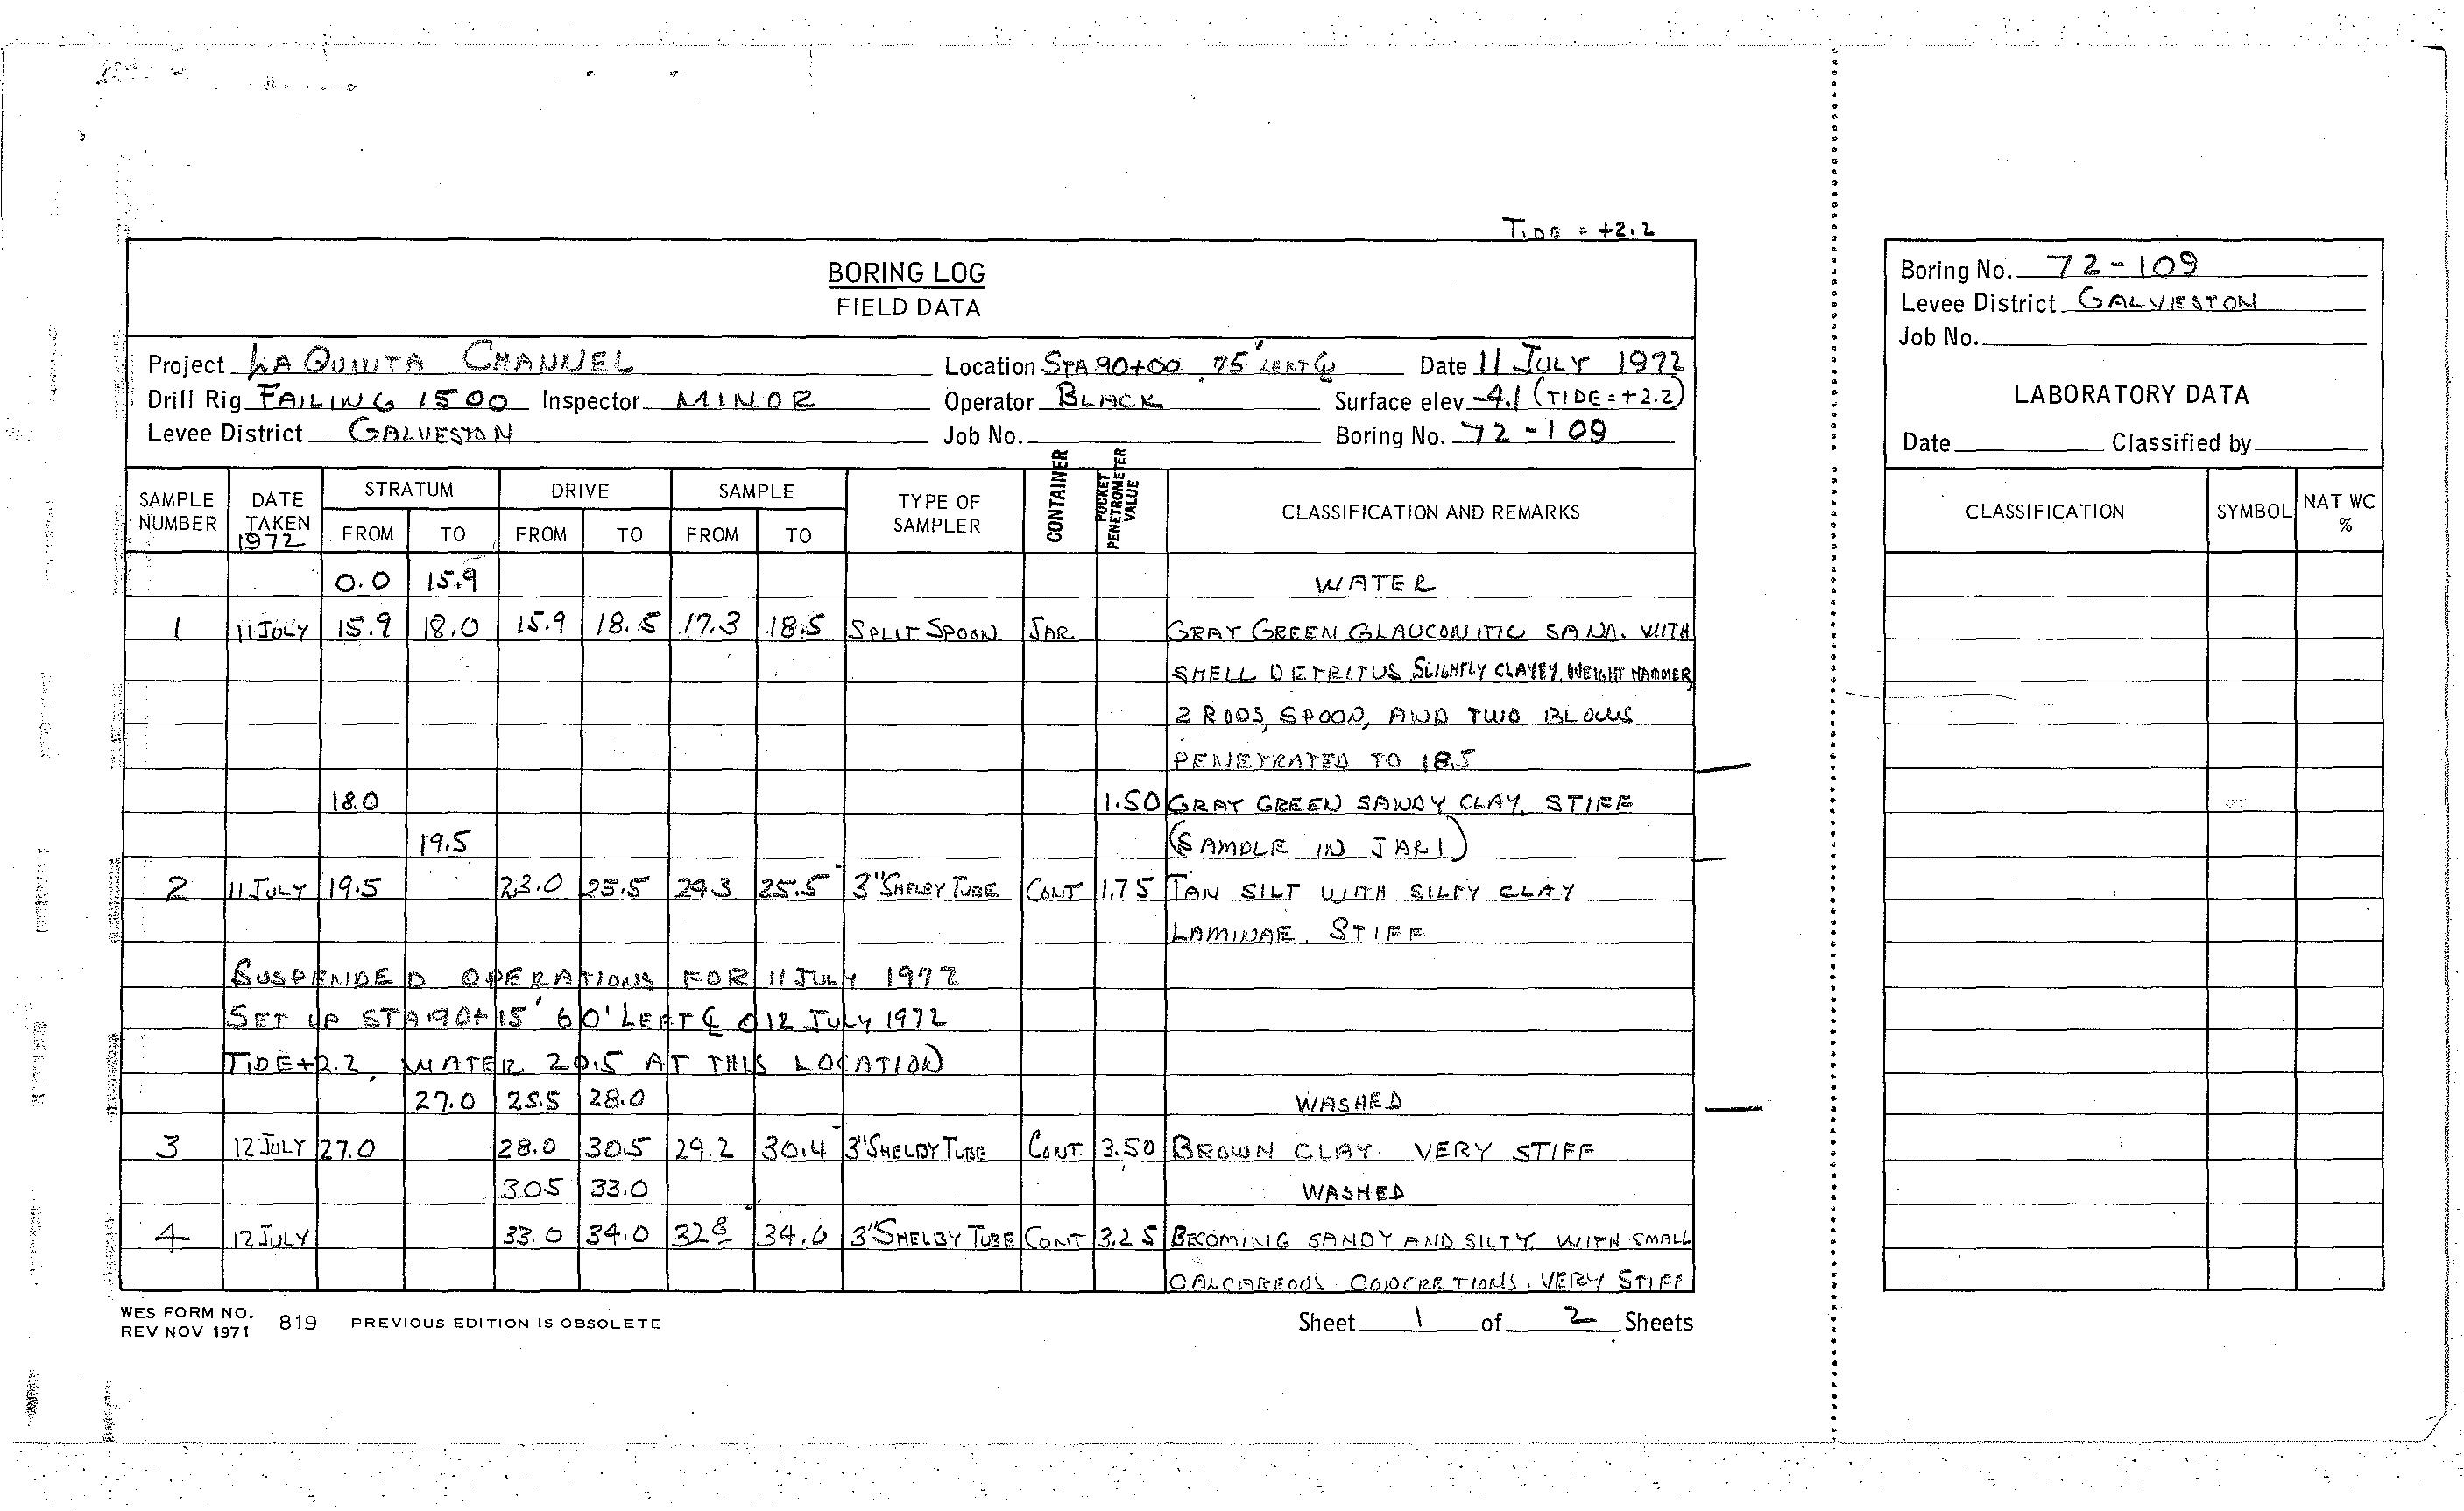 TIDE = +2.2
BORING LOG
FIELD DATA
Project LA QUINTA CHANNEL Location STA 90+00, 75' LEFT ℄ Date 11 JULY 1972
Drill Rig FAILING 1500 Inspector MINOR Operator BLACK Surface elev -4.1 (TIDE=+2.2)
Levee District GALVESTON Job No. Boring No. 72-109
SAMPLE NUMBER DATE TAKEN 1972 STRATUM FROM TO DRIVE FROM TO SAMPLE FROM TO TYPE OF SAMPLER CONTAINER POCKET PENETROMETER VALUE CLASSIFICATION AND REMARKS
0.0 15.9 WATER
1 11 JULY 15.9 18.0 15.9 18.5 17.3 18.5 SPLIT SPOON JAR GRAY GREEN GLAUCONITIC SAND. WITH
SHELL DETRITUS SLIGHTLY CLAYEY. WEIGHT HAMMER,
2 RODS, SPOON, AND TWO BLOWS
PENETRATED TO 18.5
18.0 1.50 GRAY GREEN SANDY CLAY. STIFF
19.5 (SAMPLE IN JAR 1)
2 11 JULY 19.5 23.0 25.5 24.3 25.5 3" SHELBY TUBE CONT 1.75 TAN SILT WITH SILTY CLAY
LAMINAE. STIFF
SUSPENDED OPERATIONS FOR 11 JULY 1972
SET UP STA 90+15' 60' LEFT ℄ 12 JULY 1972
TIDE +2.2, WATER 20.5 AT THIS LOCATION
27.0 25.5 28.0 WASHED
3 12 JULY 27.0 28.0 30.5 29.2 30.4 3" SHELBY TUBE CONT. 3.50 BROWN CLAY. VERY STIFF
30.5 33.0 WASHED
4 12 JULY 33.0 34.0 32.8 34.0 3" SHELBY TUBE CONT 3.25 BECOMING SANDY AND SILTY WITH SMALL
CALCAREOUS CONCRETIONS. VERY STIFF
WES FORM NO. 819 PREVIOUS EDITION IS OBSOLETE
REV NOV 1971
Sheet 1 of 2 Sheets
Boring No. 72-109
Levee District GALVESTON
Job No.
LABORATORY DATA
Date Classified by
CLASSIFICATION SYMBOL NAT WC %